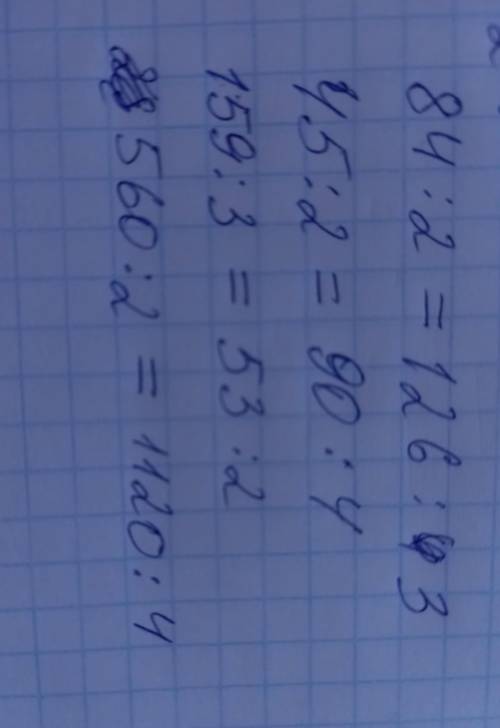 84 : 2 = 126 : 3
45 : 2 = 90 : 4
159 : 3 = 53 : 2
560 : 2 = 1120 : 4